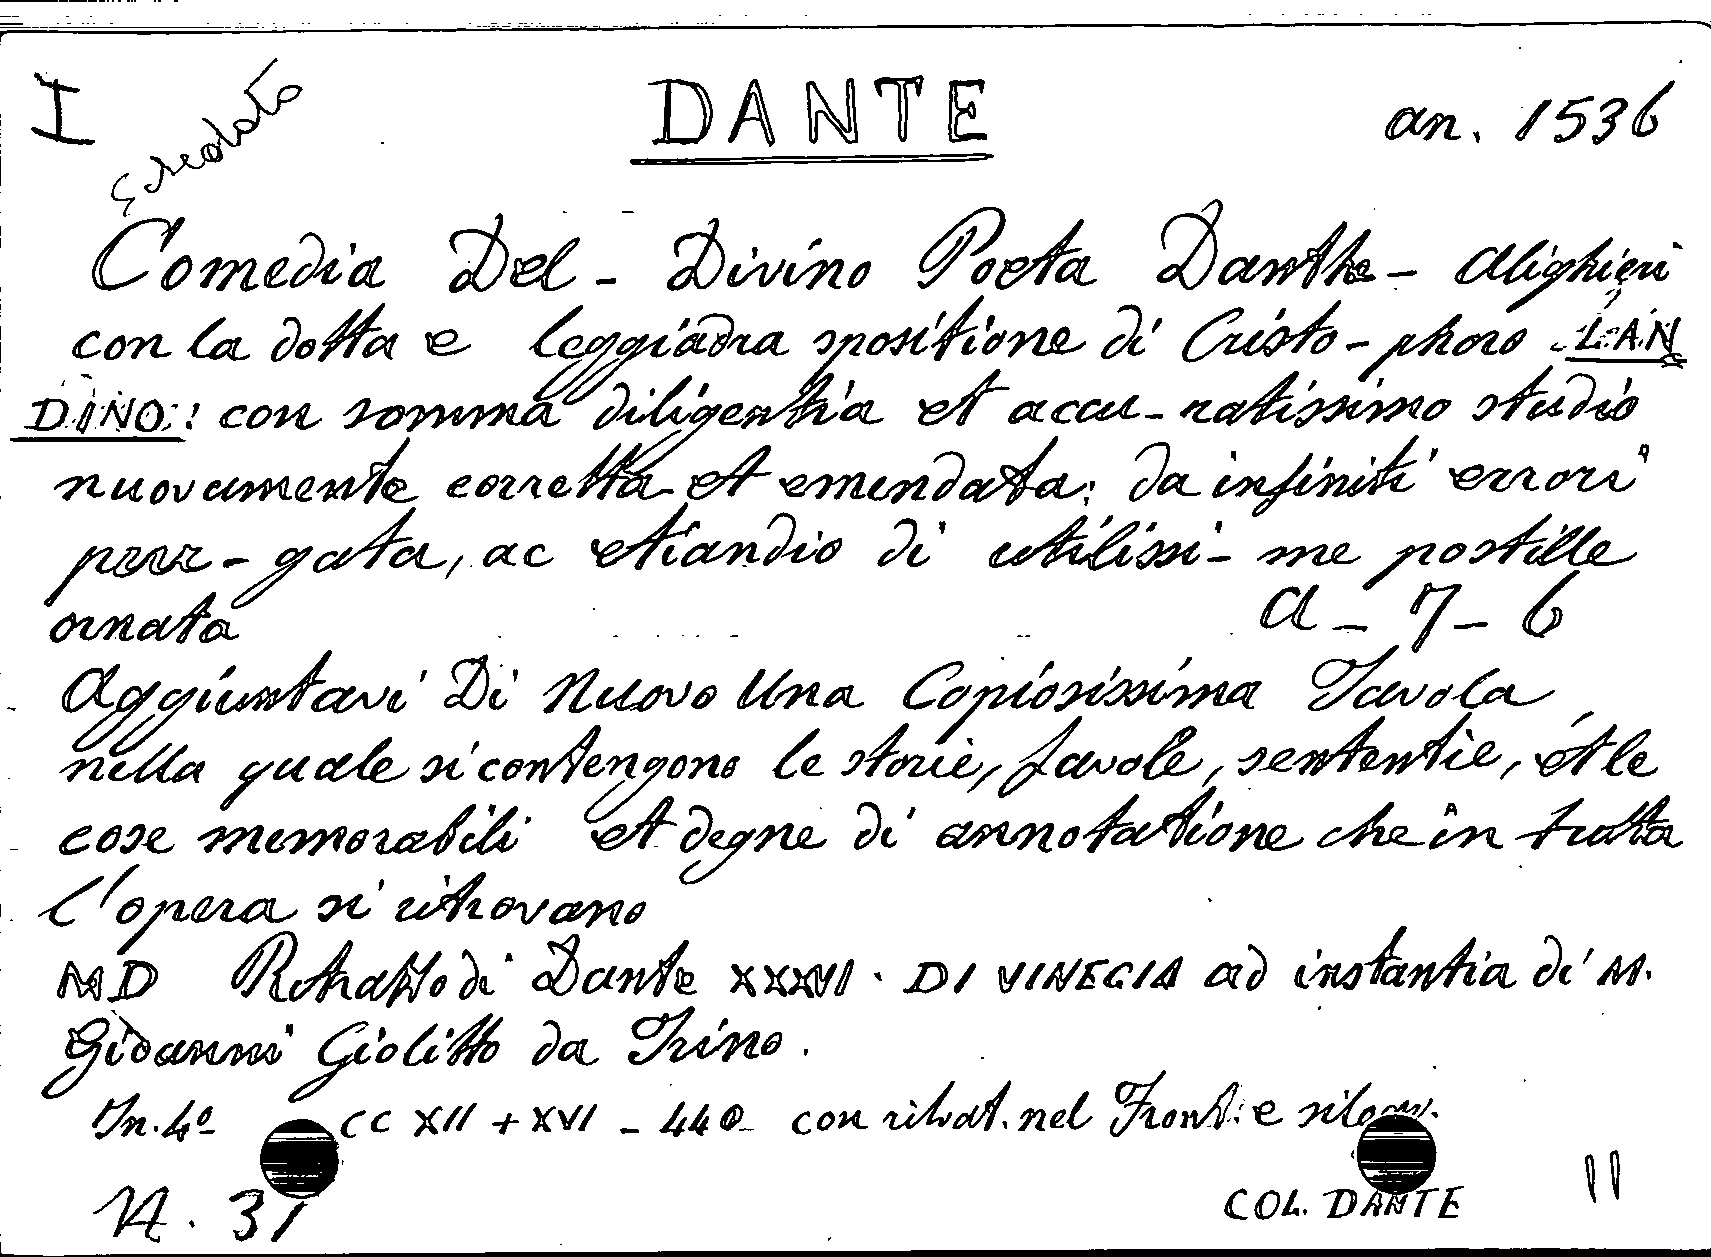 I Schedato DANTE an. 1536
Comedia Del - Divino Poeta Danthe - Alighieri
con la dotta e leggiadra spositione di Cristo - phoro LAN
DINO: con somma diligentia et accu - ratissimo studio
nuovamente corretta et emendata: da infiniti errori
pur - gata, ac etiandio di utilissi - me postille
ornata A - 7 - 6
Aggiuntavi Di Nuovo Una Copiosissima Tavola,
nella quale si contengono le storie, favole, sententie, et le
cose memorabili et degne di annotatione che in tutta
l'opera si ritrovano
MD Ritratto di Dante XXXVI. DI VINEGIA ad instantia di M.
Giovanni Giolitto da Trino.
In. 4º CC XII + XVI - 440 con ritrat. nel Front. e
N. 31 COL. DANTE 11